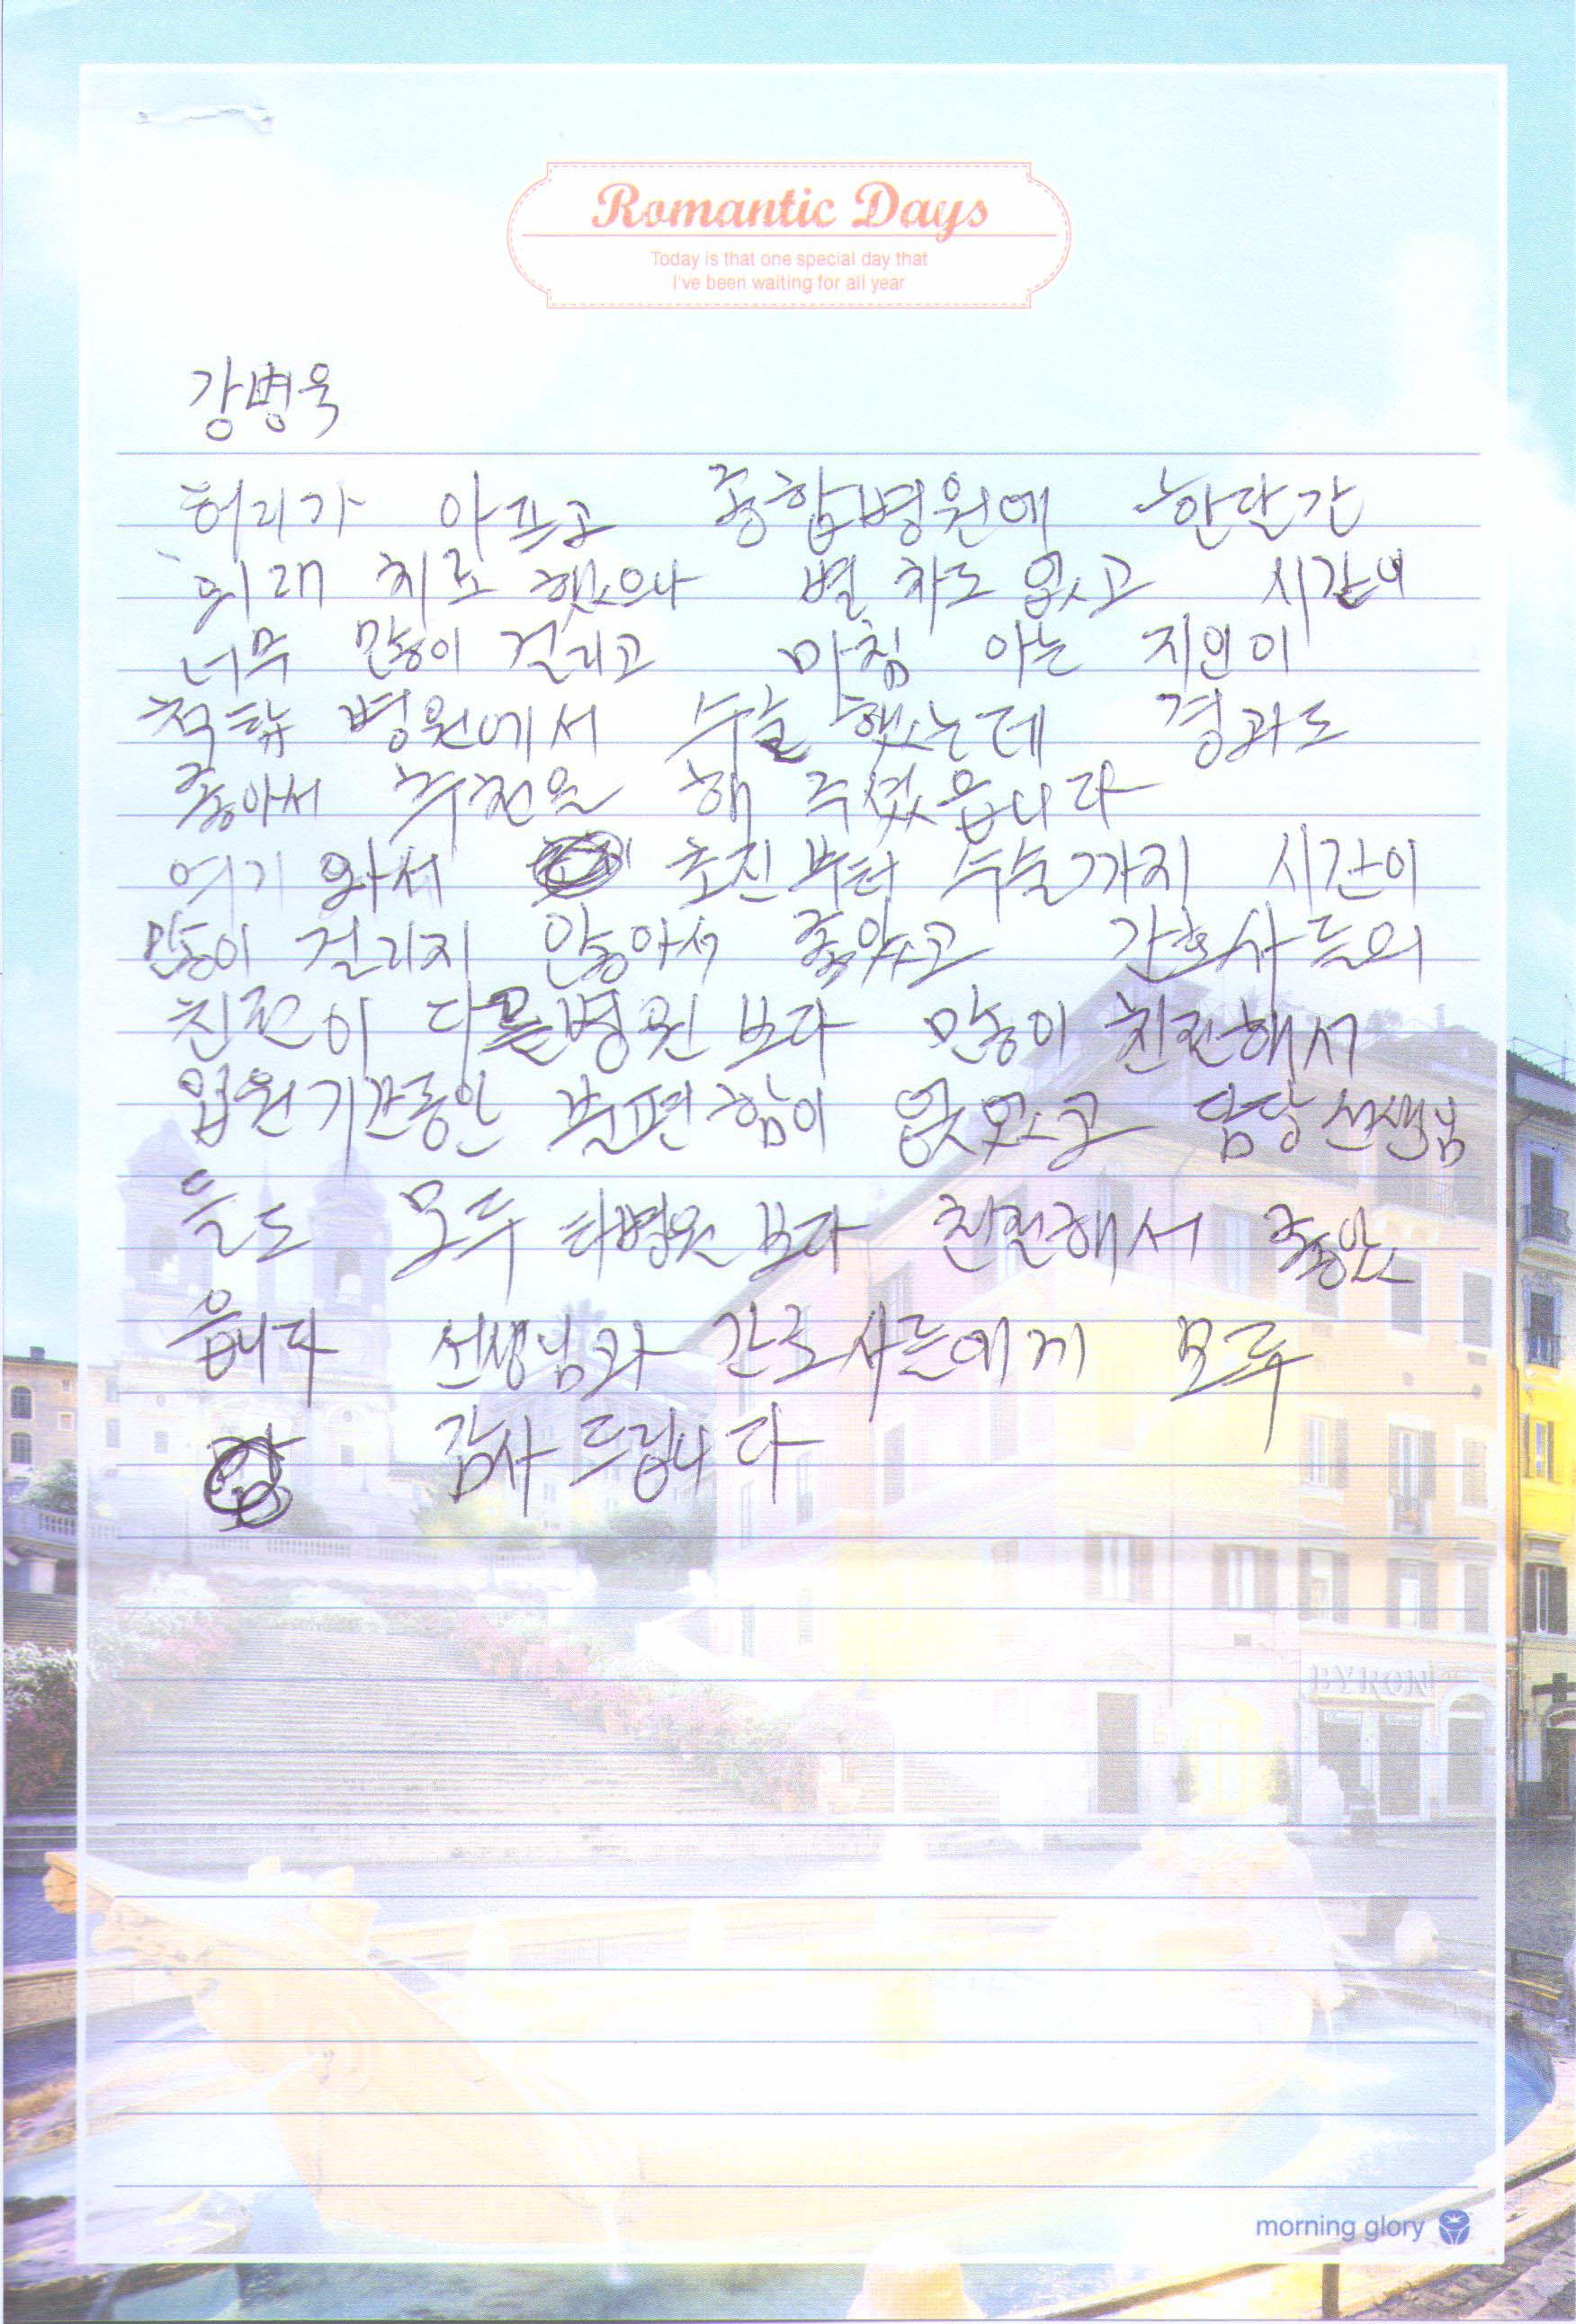 Romantic Days
Today is that one special day that
I've been waiting for all year
강병욱
허리가 아프고 종합병원에 한달간
외래 치료 했으나 별 차도 없고 시간이
너무 많이 걸리고 마침 아는 지인이
척탑 병원에서 수술 했는데 경과도
좋아서 추천을 해 주셨읍니다
여기 와서 초진부터 수술까지 시간이
많이 걸리지 않아서 좋았고 간호사들의
친절이 다른병원 보다 많이 친절해서
입원기간동안 불편함이 없었고 담당선생님
들도 모두 타병원 보다 친절해서 좋았
읍니다 선생님과 간호사들에게 모두
감사드립니다
BYRON
morning glory